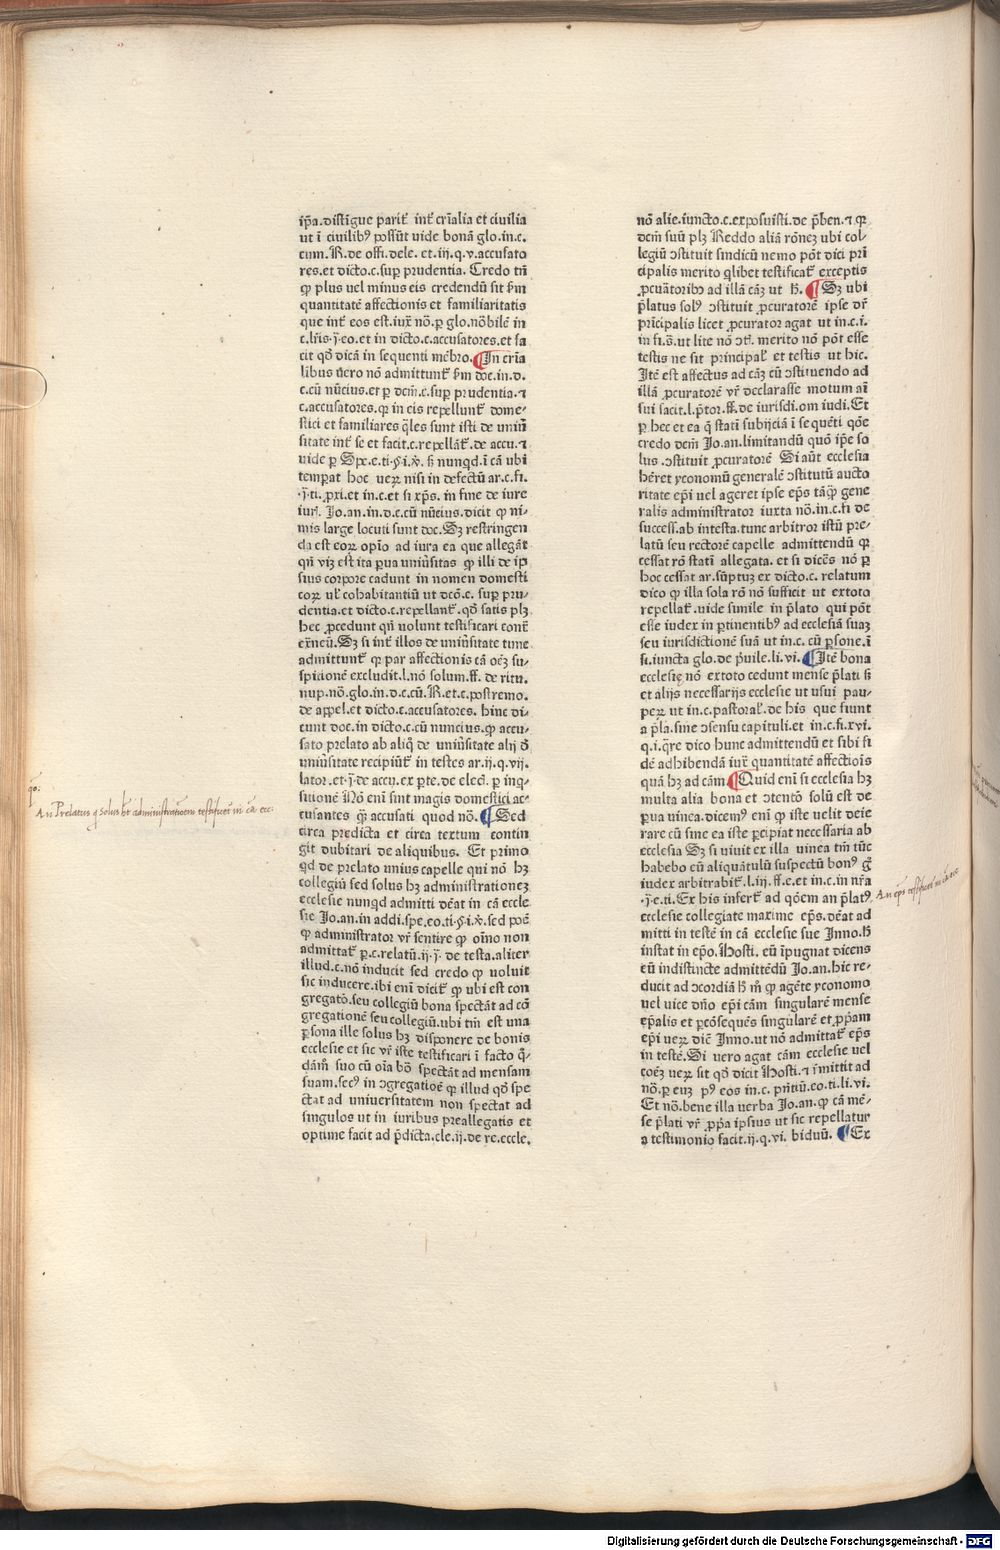 ip̄a.distīgue parit᷑ int᷑ crīalia et ciuilia
ut ī ciuilibꝰ possūt uide bonā glo.in.c.
cum.R.de offi.dele. et.iij.q.v.accusato
res.et dicto.c.suꝑ prudentia. Credo tn̄
ꝙ plus uel minus eis credendū sit ẜm
quantitatē affectionis et familiaritatis
que int᷑ eos est.iux̄ nō.ꝑ glo.nōbilē in
et in dicto.c.accusatores.et fa
cit qd̄ dicā in sequenti mēbro. ¶In crīa
libus ūero nō admittunt᷑ ẜm doc.in.d.
c.cū nūcius.et ꝑ dcm̄.c.suꝑ prudentia.⁊
c.accusatores.ꝙ in eis repellunt᷑ dome⸗
stici et familiares q̄les sunt isti de uniū
sitate int᷑ se et facit.c.repellāt᷑.de accu.⁊
uide ꝑ Spe.e.ti. nunqd.ī cā ubi
temꝑat hoc ueꝝ nisi in defectū ar.c.fi.
in.c.et si xp̄s. in fine de iure
iur̄. Jo.an.in.d.c.cū nūcius.dicit ꝙ ni⸗
mis large locuti sunt doc. Sꝫ restringen
da est eoꝝ opīo ad iura ea que allegāt
qn̄ viꝫ est ita ꝑua uniūsitas ꝙ illi de ip̄
sius corpore cadunt in nomen domesti
coꝝ ul̄ cohabitantiū ut dcō.c. suꝑ pru⸗
dentia.et dicto.c.repellant᷑.qd̄ satis plꝫ
hec ꝓcedunt qn̄ uolunt testificari cont᷑
ex̄neū. Sꝫ si int᷑ illos de uniūsitate tunc
admittunt᷑ ꝙ par affectionis cā oēꝫ su⸗
spitionē excludit.l.nō solum.ff. de ritu.
nup.nō.glo.in.d.c.cū.R.et.c.postremo.
de appel.et dicto.c.accusatores. hinc di⸗
cunt doc.in dicto.c.cū nuncius.ꝙ accu⸗
sato prelato ab aliq̄ de uniūsitate alij d̄
uniūsitate recipiūt᷑ in testes ar.ij.q.vij.
lator.et de accu.ex ꝑte.de elect. ꝑ inq̄⸗
sitionē Nō enī sint magis domestici ac⸗
cusantes q̄ accusati quod nō. ¶Sed
circa predicta et circa textum contin
git dubitari de aliquibus. Et primo
qd de prelato unius capelle qui nō hꝫ
collegiū sed solus hꝫ administrationeꝫ
ecclesie nunqd admitti dēat in cā eccle
sie Jo.an.in addi.spe.eo.ti. sed poē
ꝙ administrator vr̄ sentire ꝙ oīno non
admittat᷑ ꝑ.c.relatū.ij. de testa.aliter
illud.c.nō inducit sed credo ꝙ uoluit
sic inducere.ibi enī dicit᷑ ꝙ ubi est con
gregatō.seu collegiū bona spectāt ad cō
gregationē seu collegiū.ubi tm̄ est una
ꝑsona ille solus hꝫ disponere de bonis
ecclesie et sic vr̄ iste testificari ī facto q̄⸗
dām̄ suo cū oīa bō spectāt ad mensam
suam.secꝰ in ↄgregatioē ꝙ illud qd̄ spe
ctat ad uniuersitatem non spectat ad
singulos ut in iuribus preallegatis et
optime facit ad p̄dicta.cle.ij.de re.eccle.
nō alie.iuncto.c.exposuisti.de p̄ben.⁊ ꝙ
dem̄ suū plꝫ Reddo aliā rōneꝫ ubi col⸗
legiū ↄstituit sindicū nemo pōt dici prī
cipalis merito q̄libet testificat᷑ exceptis
ꝓcuātoribꝰ ad illā cāꝫ ut h̄. ¶Sꝫ ubi
p̄latus solꝰ ↄstituit ꝓcuratorē ipse dr̄
prīcipalis licet ꝓcurator agat ut in.c.i.
in fi.s̄.ut lite nō ↄt̄. merito nō pōt esse
testis ne sit principal᷑ et testis ut hic.
Itē est affectus ad cāꝫ cū ↄstituendo ad
illā ꝓcuratorē vr̄ declarasse motum aī
sui facit.l.p̄tor.ff.de iurisdi.om iudi. Et
ꝑ hec et ea q̄ statī subijciā ī seq̄nti q̄ōe
credo dem̄ Jo.an.limitandū quō ip̄e so
lus ↄstituit ꝓcuratorē Si aūt ecclesia
hēret yconomū generalē ↄstitutū aucto
ritate ep̄i uel ageret ipse ep̄s tāq̄ gene
ralis administrator iuxta nō.in.c.fi de
success.ab intesta.tunc arbitror istū pre⸗
latū seu rectorē capelle admittendū ꝙ
cessat rō statī allegata. et si dicēs nō ꝑ
hoc cessat ar.sūptuꝫ ex dicto.c. relatum
dico ꝙ illa sola rō nō sufficit ut extoto
repellat᷑.uide simile in p̄lato qui pōt
esse iudex in ꝑtinentibꝰ ad ecclesiā suaꝫ
seu iurisdictionē suā ut in.c. cū ꝑsone.ī
fi.iuncta glo.de p̄uile.li.vi. ¶Itē bona
ecclesię nō extoto cedunt mense p̄lati ẜ
et alijs necessarijs ecclesie ut usui pau⸗
peꝝ ut in.c.pastoral᷑.de his que fiunt
a p̄la.sine ↄsensu capituli.et in.c.fi.xvi.
q.i.q̄re dico hunc admittendū et sibi fi
dē adhibendā iux̄ quantitatē affectiōis
quā hꝫ ad cām. ¶Quid enī si ecclesia hꝫ
multa alia bona et ↄtentō solū est de
ꝑua uinea.dicemꝰ enī ꝙ iste uelit deie
rare cū sine ea iste ꝑcipiat necessaria ab
ecclesia Sꝫ si uiuit ex illa uinea tm̄ tūc
habebo eū aliquātulū suspectū bonꝰ g̊
iudex arbitrabit᷑.l.iij.ff.e.et in.c.in nr̄a
e.ti. Ex his infert᷑ ad q̄ōem an p̄latꝰ
ecclesie collegiate maxime ep̄s.dēat ad
mitti in testē in cā ecclesie sue Inno.h̄
instat in ep̄o.Hosti. eū īpugnat dicens
eū indistincte admittēdū Jo.an.hic re⸗
ducit ad ↄcordiā ꝙ agēte yconomo
uel uice dn̄o ep̄i cām singularē mense
ep̄alis et ꝑcōsequēs singularē et ꝓp̄am
ep̄i ueꝝ diē Inno.ut nō admittat᷑ ep̄s
in testē. Si uero agat cām ecclesie uel
cōeꝫ ueꝝ sit qd̄ dicit Hosti.⁊ īmittit ad
nō.ꝑ euꝫ pꝰ eos in.c. pn̄tiū.eo.ti.li.vi.
Et nō.bene illa uerba Jo.an.ꝙ cā mē⸗
se p̄lati vr̄ ꝓp̄a ipsius ut sic repellatur
a testimonio facit.ij.q.vi. biduū. ¶Ex
qō.
An Prelatus q̄ solus hēt administrationem testificet᷑ in cā ecc.
An ep̄s testificet᷑ in cā ecc
Digitalisierung gefördert durch die Deutsche Forschungsgemeinschaft - DFG